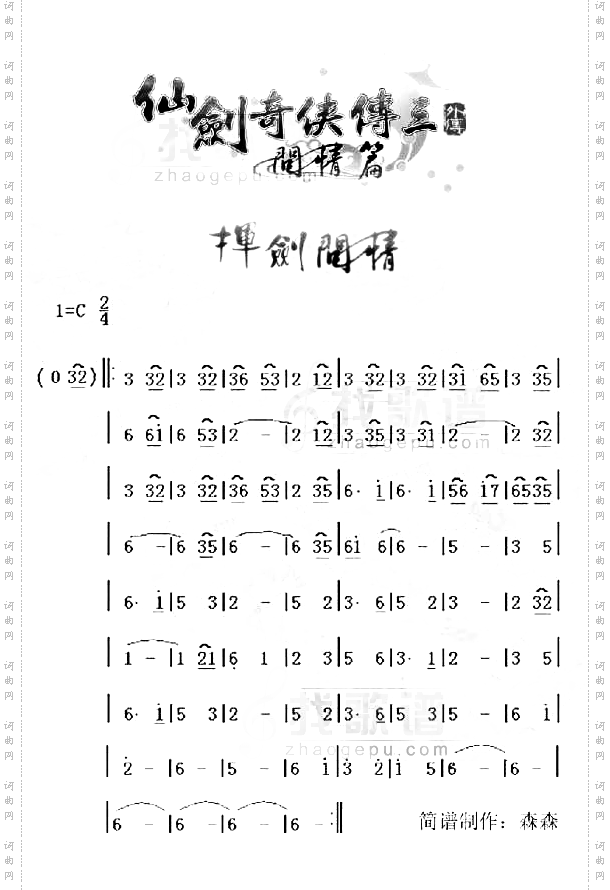 仙劍奇俠傳三 外傳
問情篇
zhaogepu.com
揮劍問情
1=C 2/4
(0 32)‖: 3 32|3 32|36 53|2 12|3 32|3 32|3i 65|3 35|
6 6i|6 53|2 -|2 12|3 35|3 31|2 -|2 32|
3 32|3 32|36 53|2 35|6· i|6· i|56 i7|6535|
6 -|6 35|6 -|6 35|6i 6|6 -|5 -|3 5|
6· i|5 3|2 -|5 2|3· 6|5 5|3 -|2 32|
1 -|1 21|6 1|2 3|5 6|3· 1|2 -|3 5|
6· i|5 3|2 -|5 2|3· 6|5 5|5 -|6 i|
2 -|6 -|5 -|6 i|3 2|i 5|6 -|6 -|
6 -|6 -|6 -|6 -:‖
简谱制作：森森
找歌谱
zhaogepu.com
找歌谱
zhaogepu.com
词曲网